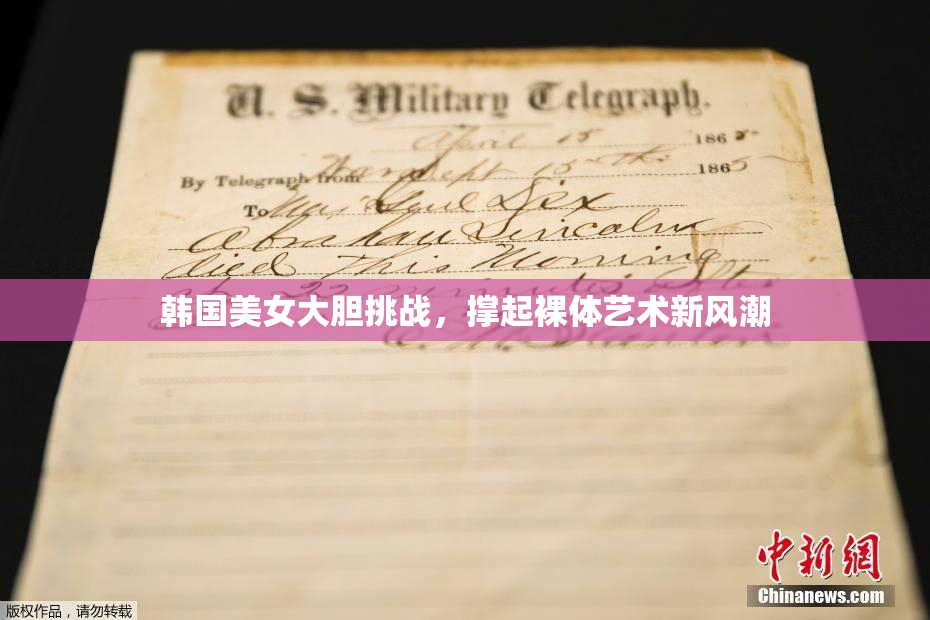 U. S. Military Telegraph.
April 15 1865
By Telegraph from War Dept 15th 1865
To Maj Genl Dix
Abraham Lincoln
died This Morning
at 22 minutes after
韩国美女大胆挑战，撑起裸体艺术新风潮
E. M. Stanton
中新网
Chinanews.com
版权作品，请勿转载